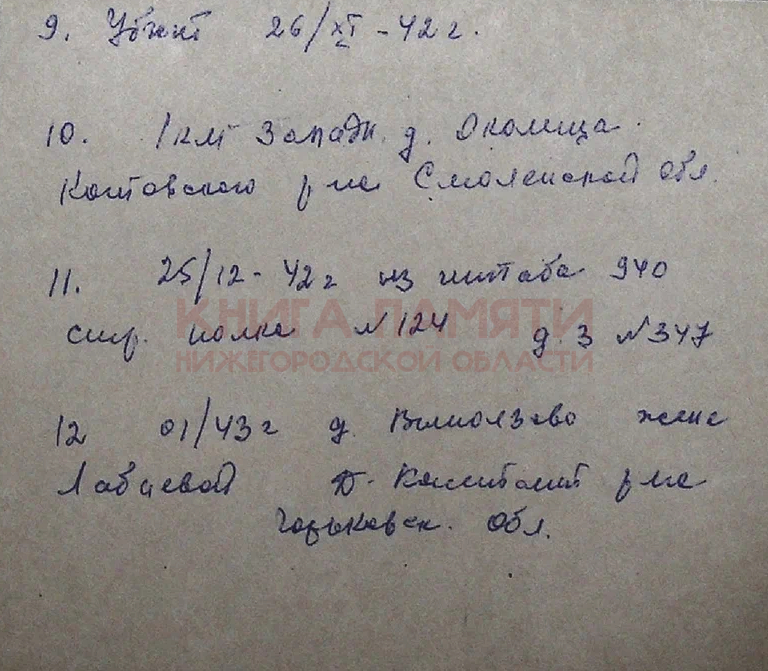 9. Убит 26/XI - 42 г.
10. 1 км Западн. д. Околица
Смоленской обл.
11. 25/12 - 42 г из штаба 940
КНИГА ПАМЯТИ
стр. полка №124 д. 3 №347
НИЖЕГОРОДСКОЙ ОБЛАСТИ
12 01/43 г д. жене
Д. р-на
Горьковск. Обл.